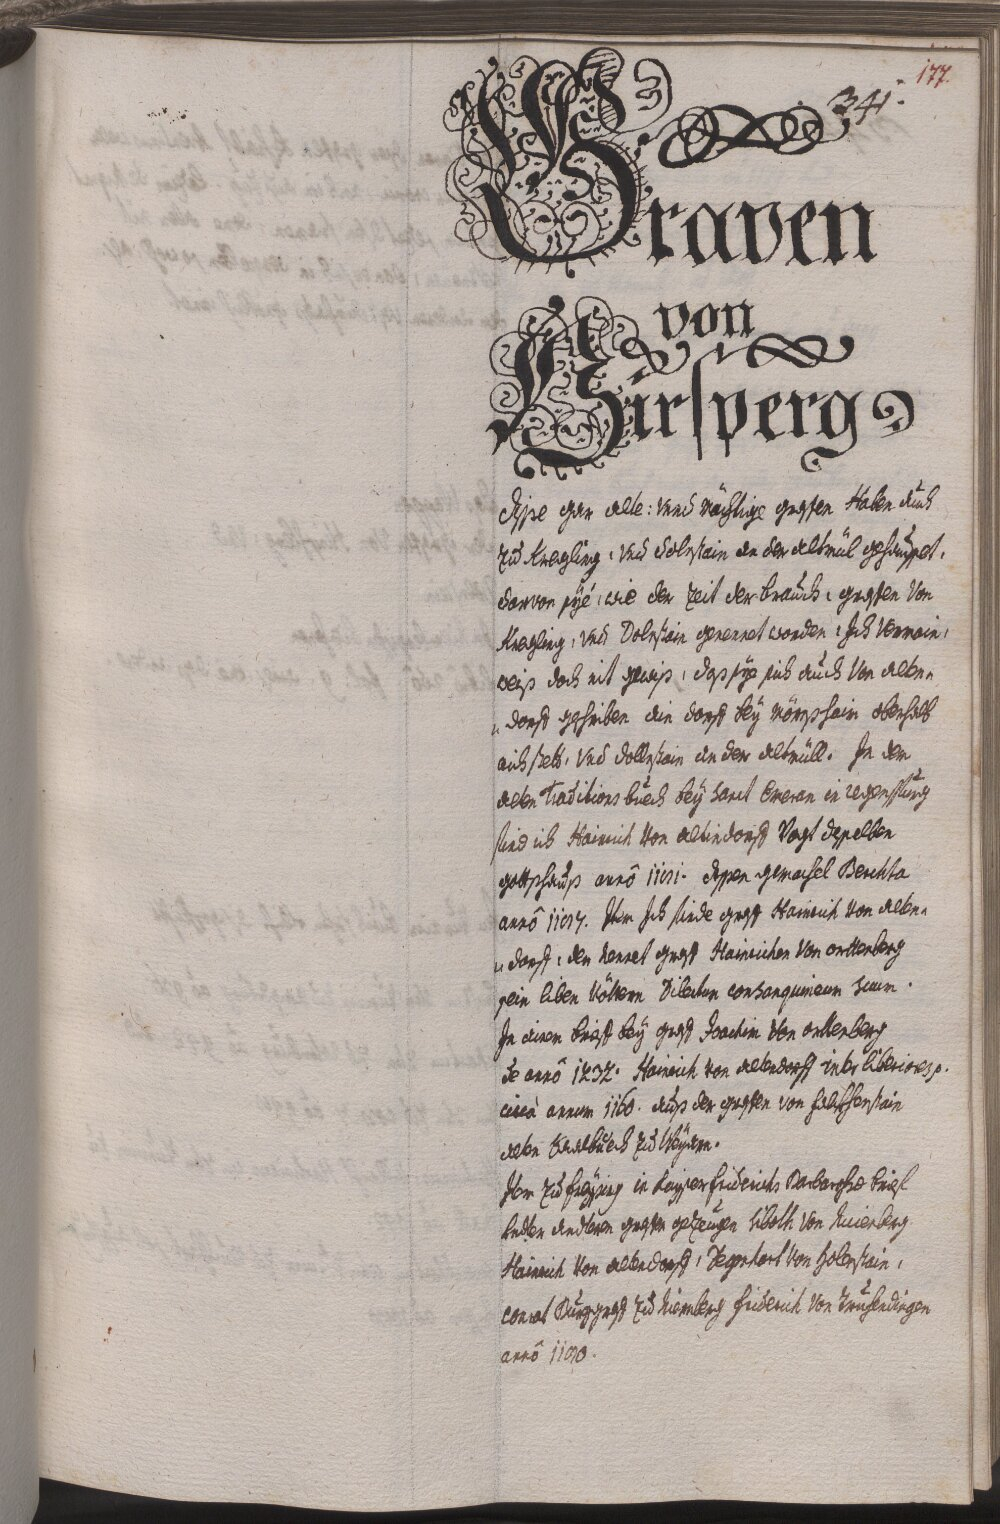 177.
341.
Graven
von
Hirsperg
dise gar alte: vnd mächtige grafen Haben auch
zu Kregling, vnd Dolnstain an der altmül gehauset,
darvon sye, wie der zeit der brauch, grafen von
Kregling, vnd Dolnstain genennet worden, Ich vermain,
weiß doch nit gewiß, daß sye sich auch von alten„
„dorff geschriben ain dorff bey Mörnshaim oberhalb
aichstett, vnd dollnstain an der altmüll. In dem
alten Traditions buech bey Sanct Emeran in regenspurg
find ich Hainrich von altendorff Vogt desselben
gottshauß anno 1191. dessen gemachel Berchta
anno 1197. Item Ich finde graff Hainrich von alten„
„dorff, den nennet graff Hainrichen von orttenberg
sein liben Vöttern Dilectum consanguineum suum.
In ainem brieff bey graff Joachim von orttenberg
de anno 1232. Hainrich von altendorff inter liberiores p.
circa annum 1160. auß der grafen von falckhenstain
alten Saalbuech zu Weyarn.
Item zu freysing in kayser friderichs Barbarossae brief
under anderen grafen gezeugen Liboth von
Hainrich von altendorff, Degenhart von Holnstain,
conrat Burggraff zu Niernberg friderich von Truhendingen
anno 1190.